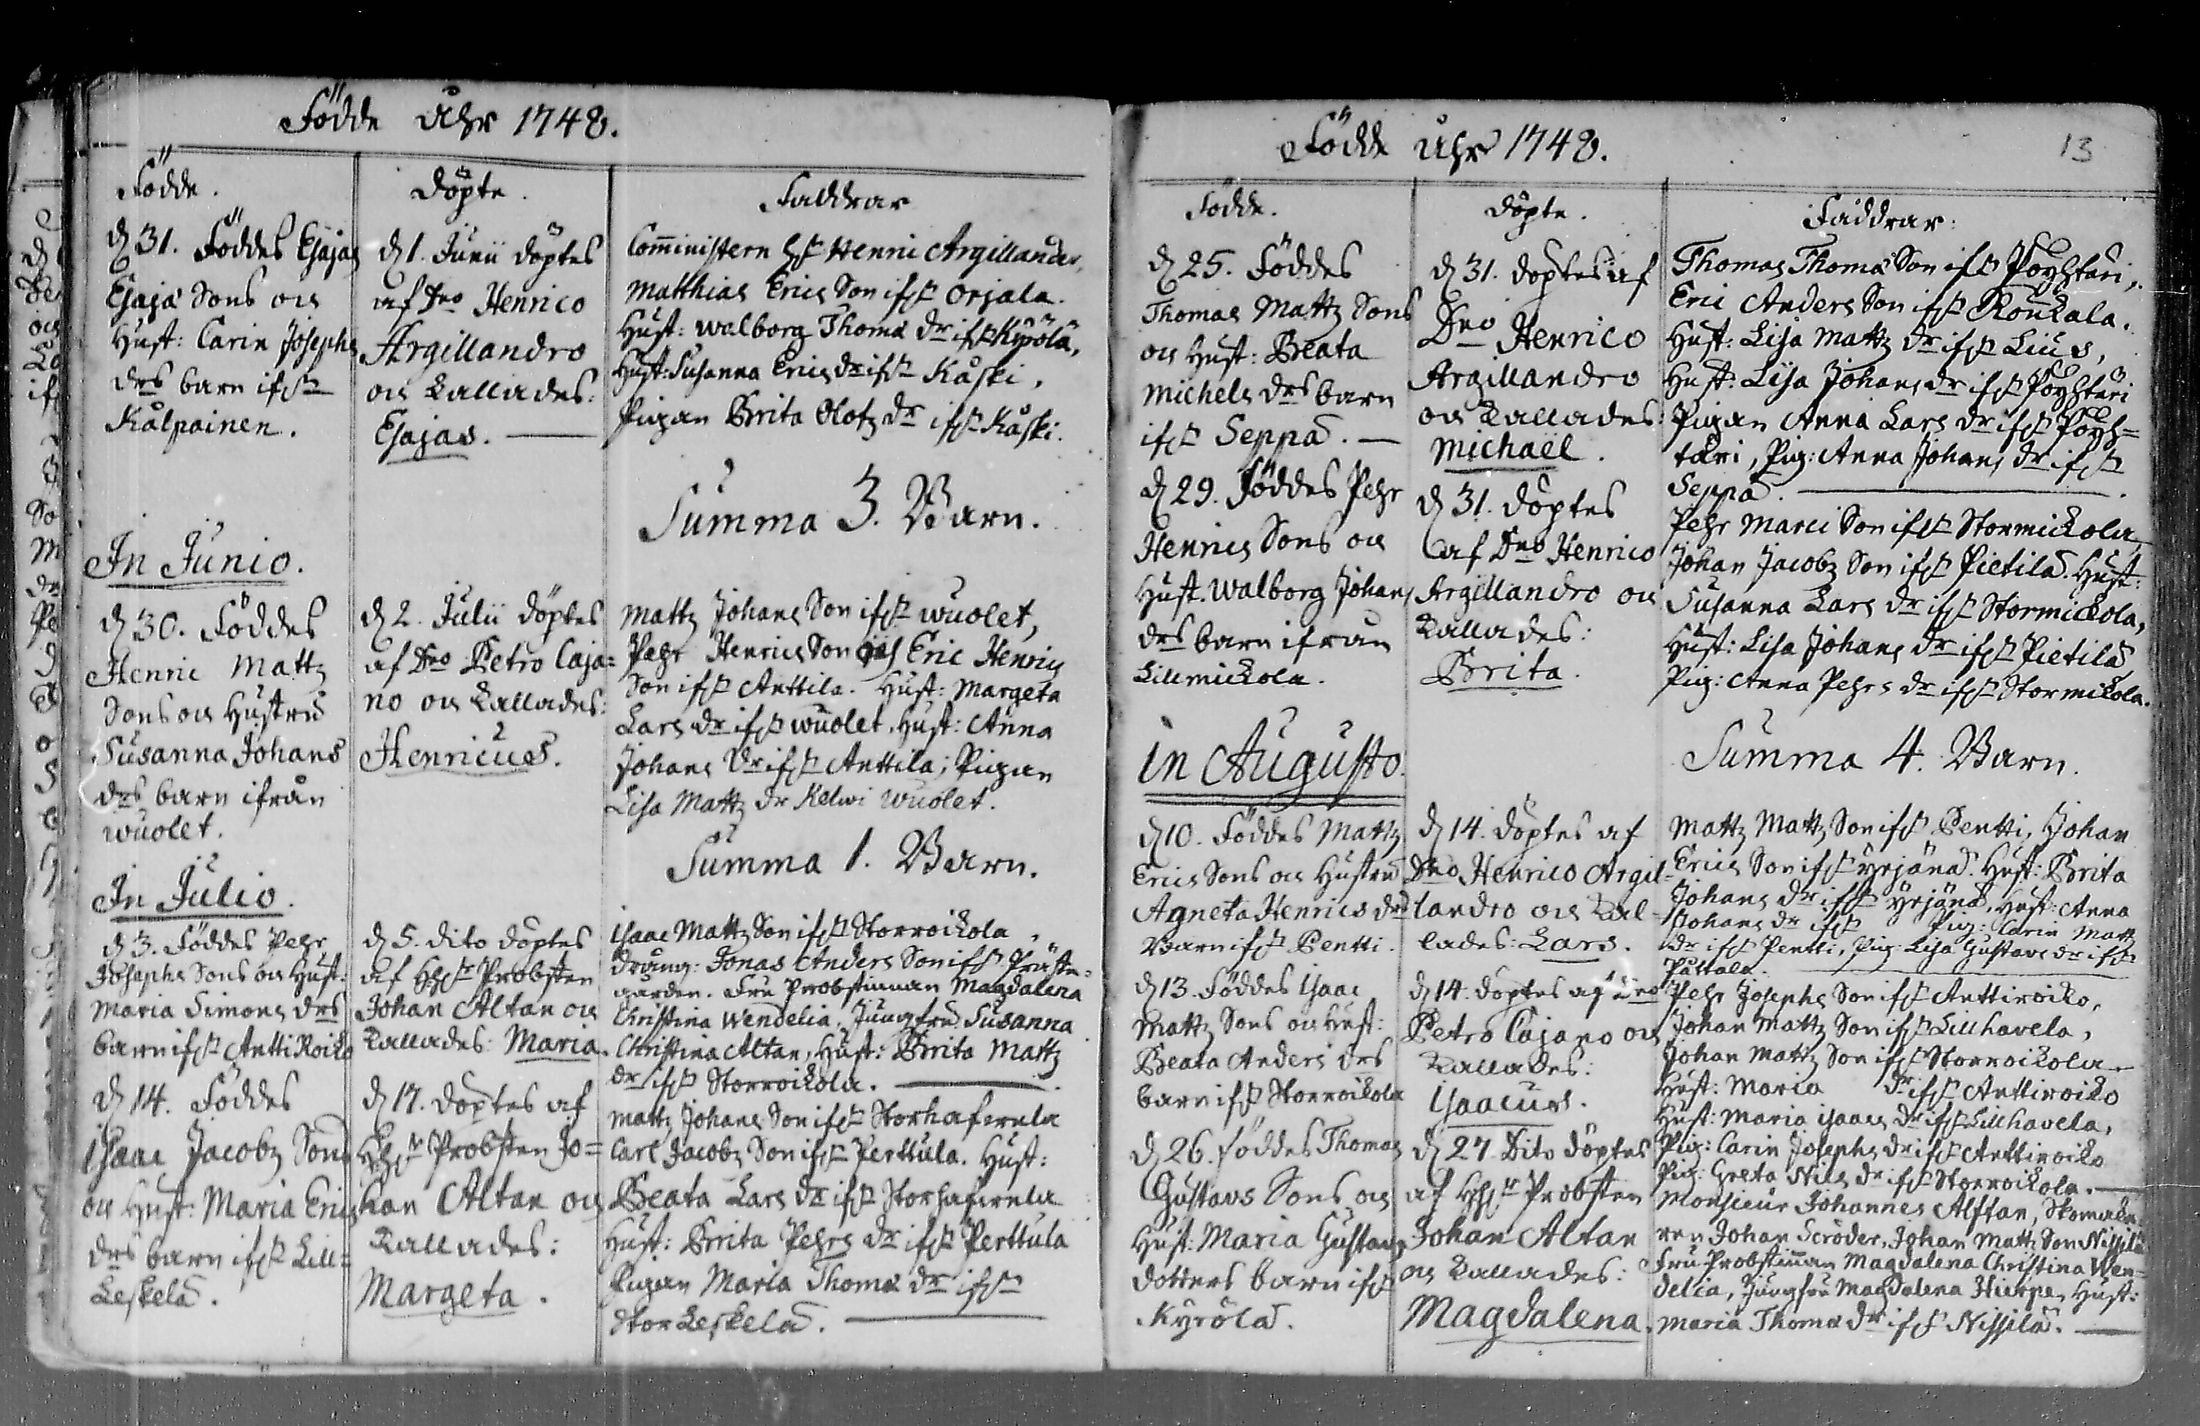 Födde Åhr 1748.
Födde.
Döpte.
Faddrar
d 31. Föddes Esajas
Esajæ Sons och
Hust: Carin Josephs
drs barn ifrn
Kålpainen.
d 1. Junii döptes
af Dno Henrico
Argillandro
och Kallades:
Esajas.
Comministern Hr Henric Argillander,
Matthias Erics Son ifrn Orjala.
Hust: Walborg Thomæ dr ifrn Kipölä,
Hust: Susanna Erics dr ifrn Kåski,
Pigan Brita Olofz dr ifrn Kåski.
Summa 3. Barn.
In Junio.
d 30. Föddes
Henric Mattz
Sons och Hustru
Susanna Johans
drs barn ifrån
Wuolet.
d 2. Julii döptes
af Dno Petro Caja=
no och Kallades:
Henricus.
Mattz Johans Son ifrn Wuolet,
Pehr Henrics Son och Eric Henrics
Son ifrn Anttila. Hust: Margeta
Lars dr ifrn Wuolet, Hust: Anna
Johans dr ifrn Anttila; Pigan
Lisa Mattz dr Kelwi Wuolet.
Summa 1. Barn.
In Julio.
d 3. Föddes Pehr
Josephs Sons och Hust:
Maria Simons drs
barn ifrn Antti Roiko
d 5. dito döptes
af HHr Probsten
Johan Altan och
Kallades: Maria.
Isaac Mattz Son ifrn Storroikola,
dräng: Jonas Anders Son ifrn Präste=
gården. Fru Probstinnan Magdalena
Christina Wendelia, Jungfru Susanna
Christina Altan, Hust: Brita Mattz
dr ifrn Storroikola.
d 14. Föddes
Isaac Jacobz Sons
och Hust: Maria Erics
drs barn ifrn Lill=
Leskelä.
d 17. döptes af
HHr Probsten Jo=
han Altan och
Kallades:
Margeta.
Mattz Johans Son ifrn Storhaferela
Carl Jacobz Son ifrn Perttula. Hust:
Beata Lars dr ifrn Storhaferela
Hust: Brita Pehrs dr ifrn Perttula
Pigan Maria Thomæ dr ifrn
Stor Leskelä.
Födde Åhr 1748.
13
Födde.
Döpte.
Faddrar:
d 25. Föddes
Thomas Mattz Sons
och Hust: Beata
Michels drs barn
ifrn Seppä.
d 31. döptes af
Dno Henrico
Argillandro
och Kallades:
Michaël.
Thomas Thomæ Son ifrn Pöyhtäri,
Eric Anders Son ifrn Koukala.
Hust: Lisa Mattz dr ifrn Lius,
Hust: Lisa Johans dr ifrn Pöyhtäri
Pigan Anna Lars dr ifrn Pöyh=
täri, Pig: Anna Johans dr ifrn
Seppä.
d 29. Föddes Pehr
Henrics Sons och
Hust. Walborg Johans
drs barn ifrån
Lillmickola.
d 31. döptes
af Dno Henrico
Argillandro och
Kallades:
Brita.
Pehr Marci Son ifrn Stormickola,
Johan Jacobz Son ifrn Pietilä. Hust:
Susanna Lars dr ifrn Stormickola,
Hust: Lisa Johans dr ifrn Pietilä
Pig: Anna Pehrs dr ifrn Stormikola.
Summa 4. Barn.
in Augusto.
d 10. Föddes Mattz
Erics Sons och Hustru
Agneta Henrics drs
Barn ifrn Pentti.
d 14. döptes af
Dno Henrico Argil=
landro och Kal=
lades: Lars.
Mattz Mattz Son ifrn Pentti, Johan
Erics Son ifrn Yrjänä. Hust: Brita
Johans dr ifrn Yrjänä, Hust: Anna
Johans dr ifrn Pig: Carin Mattz
dr ifrn Pentti, Pig: Lisa Gustavs dr ifrn
Pättala.
d 13. Föddes Isaac
Mattz Sons och Hust:
Beata Anders drs
barn ifrn Storroikola
d 14. döptes af Dno
Petro Cajano och
Kallades:
Isaacus.
Pehr Josephs Son ifrn Anttiroiko,
Johan Mattz Son ifrn Lillhavela,
Johan Mattz Son ifrn Storroikola
Hust: Maria dr ifrn Anttiroiko
Hust: Maria Isaacs dr ifrn Lillhavela,
Pig: Carin Josephs dr ifrn Anttiroiko
Pig: Greta Nils dr ifrn Storroikola.
d 26. föddes Thomas
Gustavs Sons och
Hust: Maria Gustavs
dotters barn ifrn
Kyrölä.
d 27 Dito döptes
af HHr Probsten
Johan Altan
och Kallades:
Magdalena.
Monsieur Johannes Alftan, Skomaka=
ren Johan Scröder, Johan Mattz Son Nissilä
Fru Probstinnan Magdalena Christina Wen=
delia, Jungfru Magdalena Hierpe, Hust:
Maria Thomæ dr ifrn Nissilä.